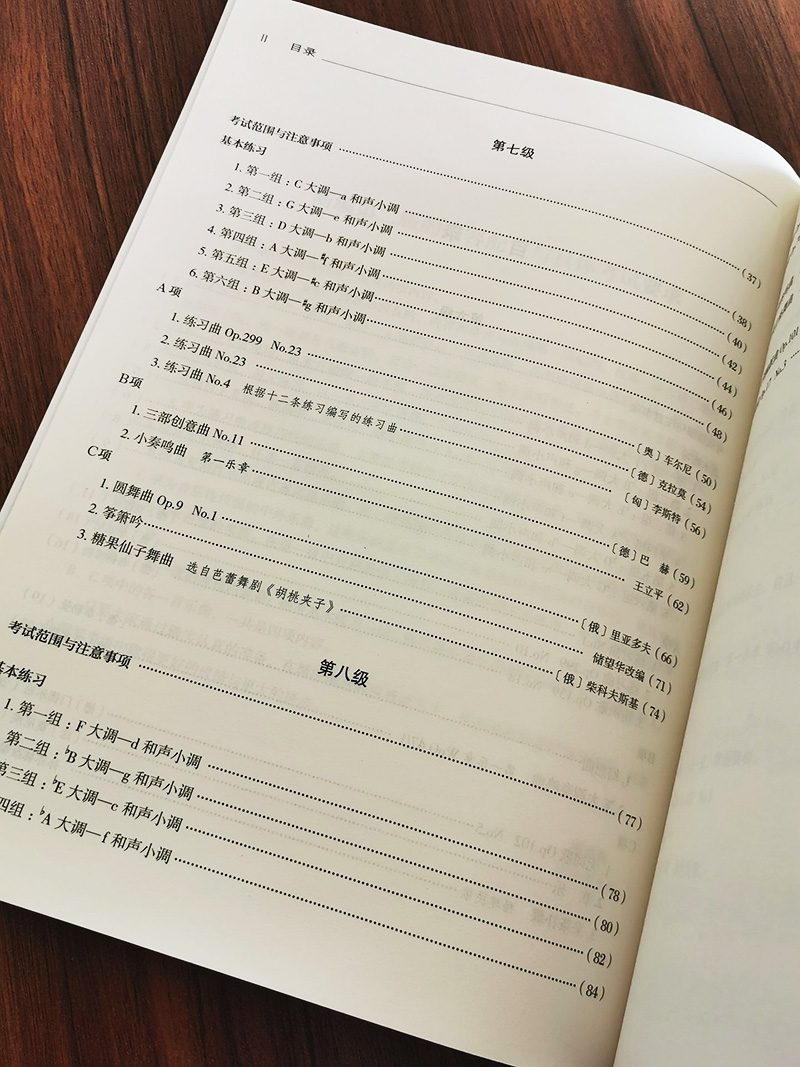 II 目录
第七级
考试范围与注意事项 (37)
基本练习
1. 第一组：C 大调—a 和声小调 (38)
2. 第二组：G 大调—e 和声小调 (40)
3. 第三组：D 大调—b 和声小调 (42)
4. 第四组：A 大调—#f 和声小调 (44)
5. 第五组：E 大调—#c 和声小调 (46)
6. 第六组：B 大调—#g 和声小调 (48)
A 项
1. 练习曲 Op.299 No.23 〔奥〕车尔尼 (50)
2. 练习曲 No.23 〔德〕克拉莫 (54)
3. 练习曲 No.4 根据十二条练习编写的练习曲 〔匈〕李斯特 (56)
B 项
1. 三部创意曲 No.11 〔德〕巴 赫 (59)
2. 小奏鸣曲 第一乐章 王立平 (62)
C 项
1. 圆舞曲 Op.9 No.1 〔俄〕里亚多夫 (66)
2. 筝箫吟 储望华改编 (71)
3. 糖果仙子舞曲 选自芭蕾舞剧《胡桃夹子》 〔俄〕柴科夫斯基 (74)
第八级
考试范围与注意事项 (77)
基本练习
1. 第一组：F 大调—d 和声小调 (78)
第二组：♭B 大调—g 和声小调 (80)
第三组：♭E 大调—c 和声小调 (82)
四组：♭A 大调—f 和声小调 (84)